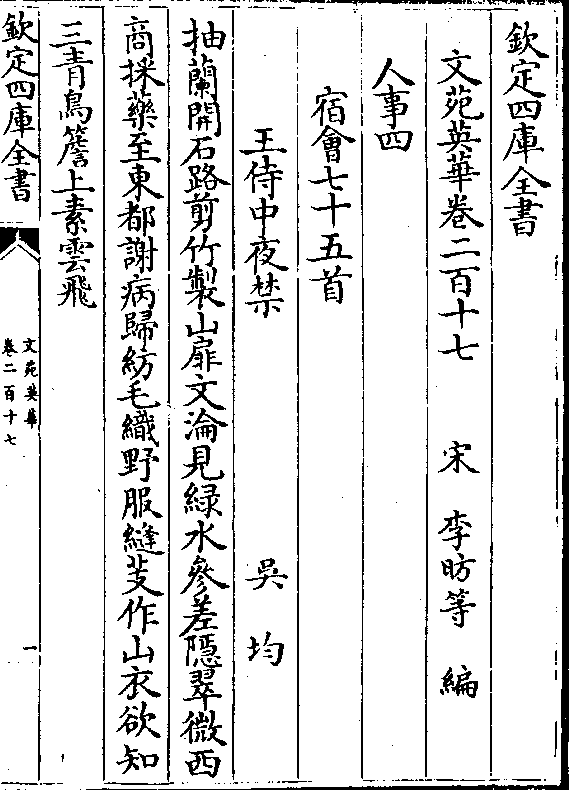 欽定四庫全書
文苑英華卷二百十七
宋 李昉等 編
人事四
宿會七十五首
王侍中夜禁
吳均
抽蘭開石路剪竹製山扉文淪見緑水參差隱翠微西
商採藥至東都謝病歸紡毛織野服縫芰作山衣欲知
三青鳥簷上素雲飛
欽定四庫全書
文苑英華
卷二百十七
一